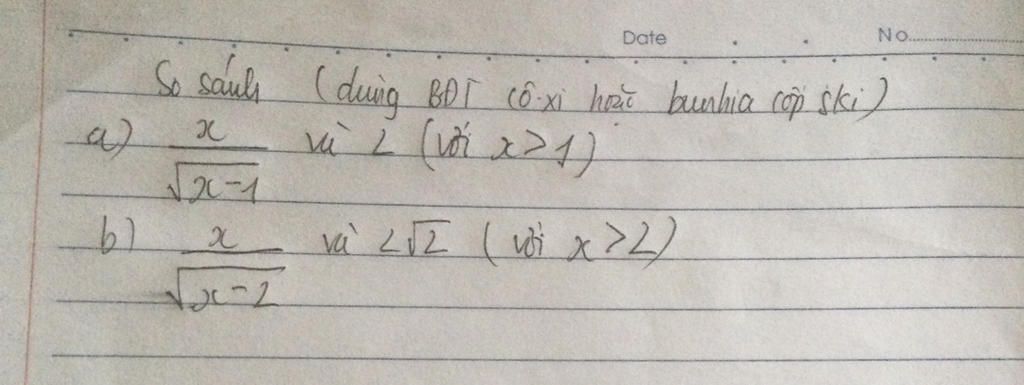 Date No
So sánh (dùng BĐT cô-xi hoặc bunhia cốp ski)
a) $\frac{x}{\sqrt{x-1}}$ và 2 (với x>1)
b) $\frac{x}{\sqrt{x-2}}$ và 2√2 (với x>2)